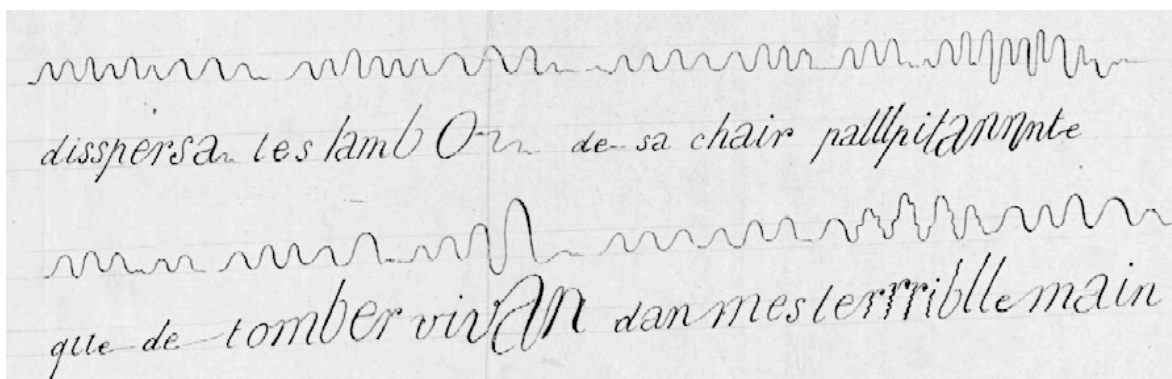 disspersan les lambO de sa chair pallpitannnte
que de tomber vivAn dan mes terrriblle main